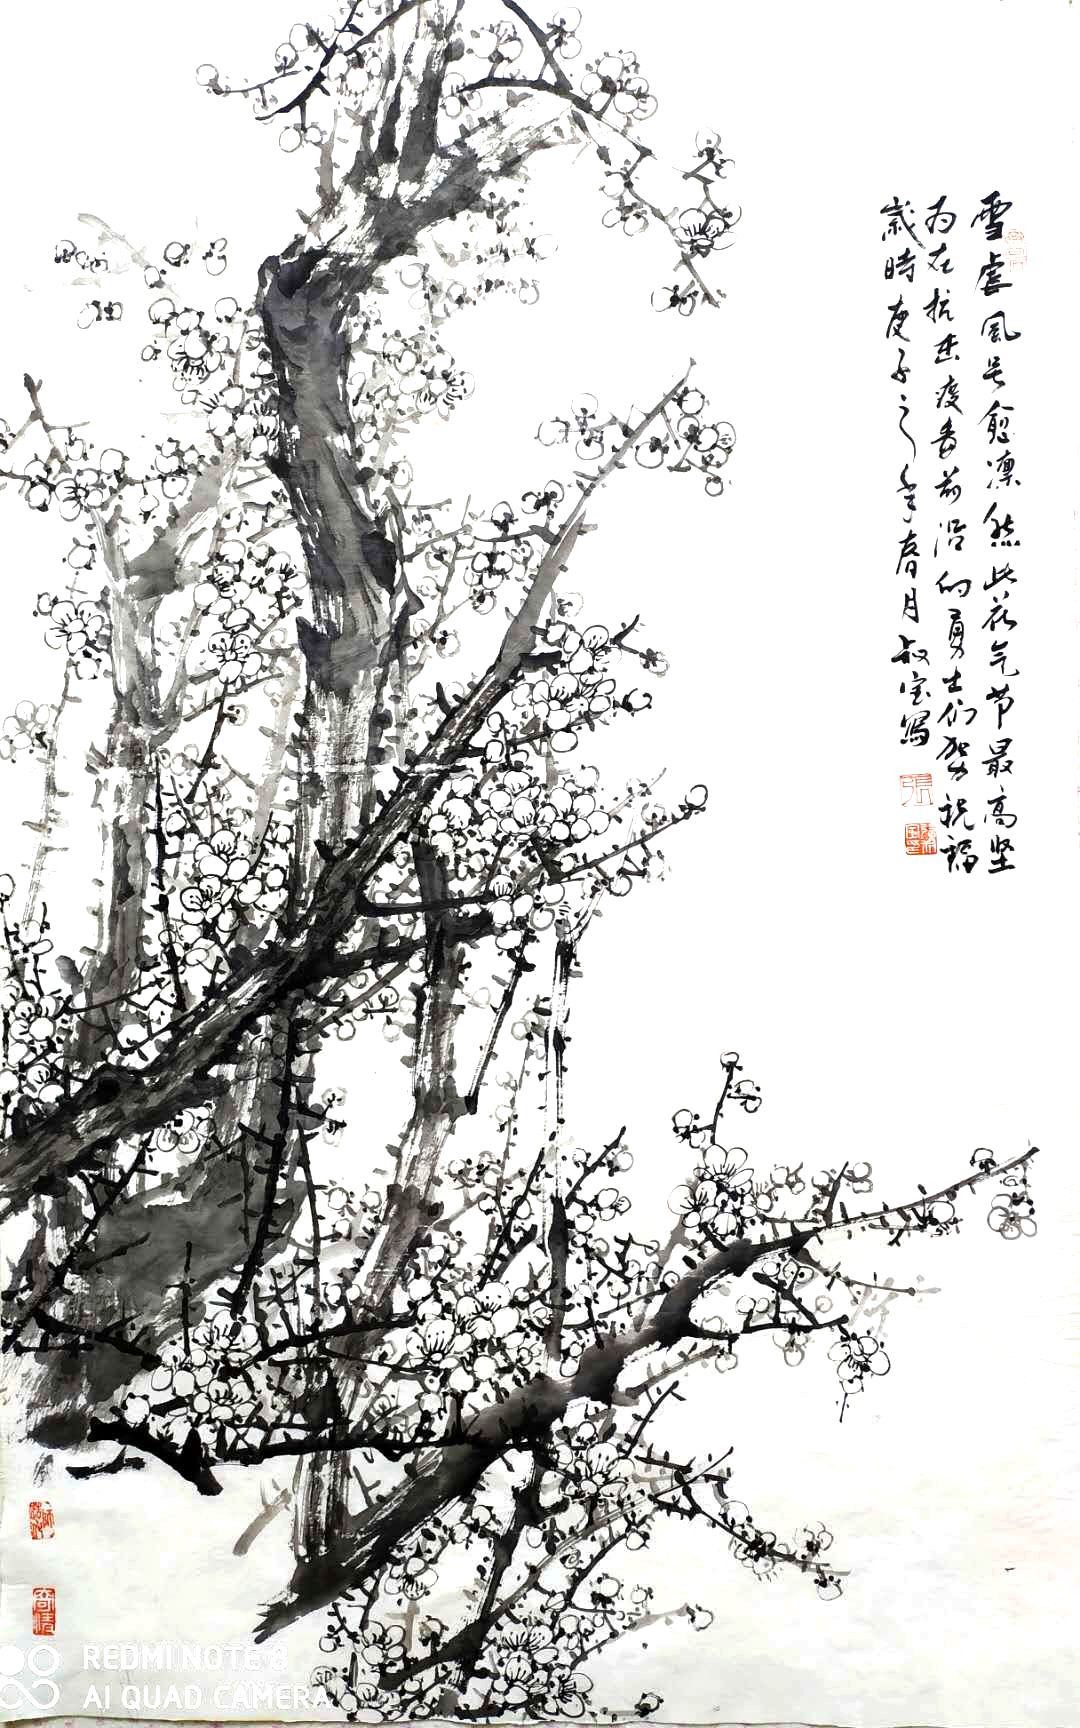 雪虐風号愈凛然此花气节最高坚
为在抗击疫毒前沿的勇士们加努祝福
歲時庚子之年春月叔宝寫
張
奇清
REDMI NOTE 8
AI QUAD CAMERA